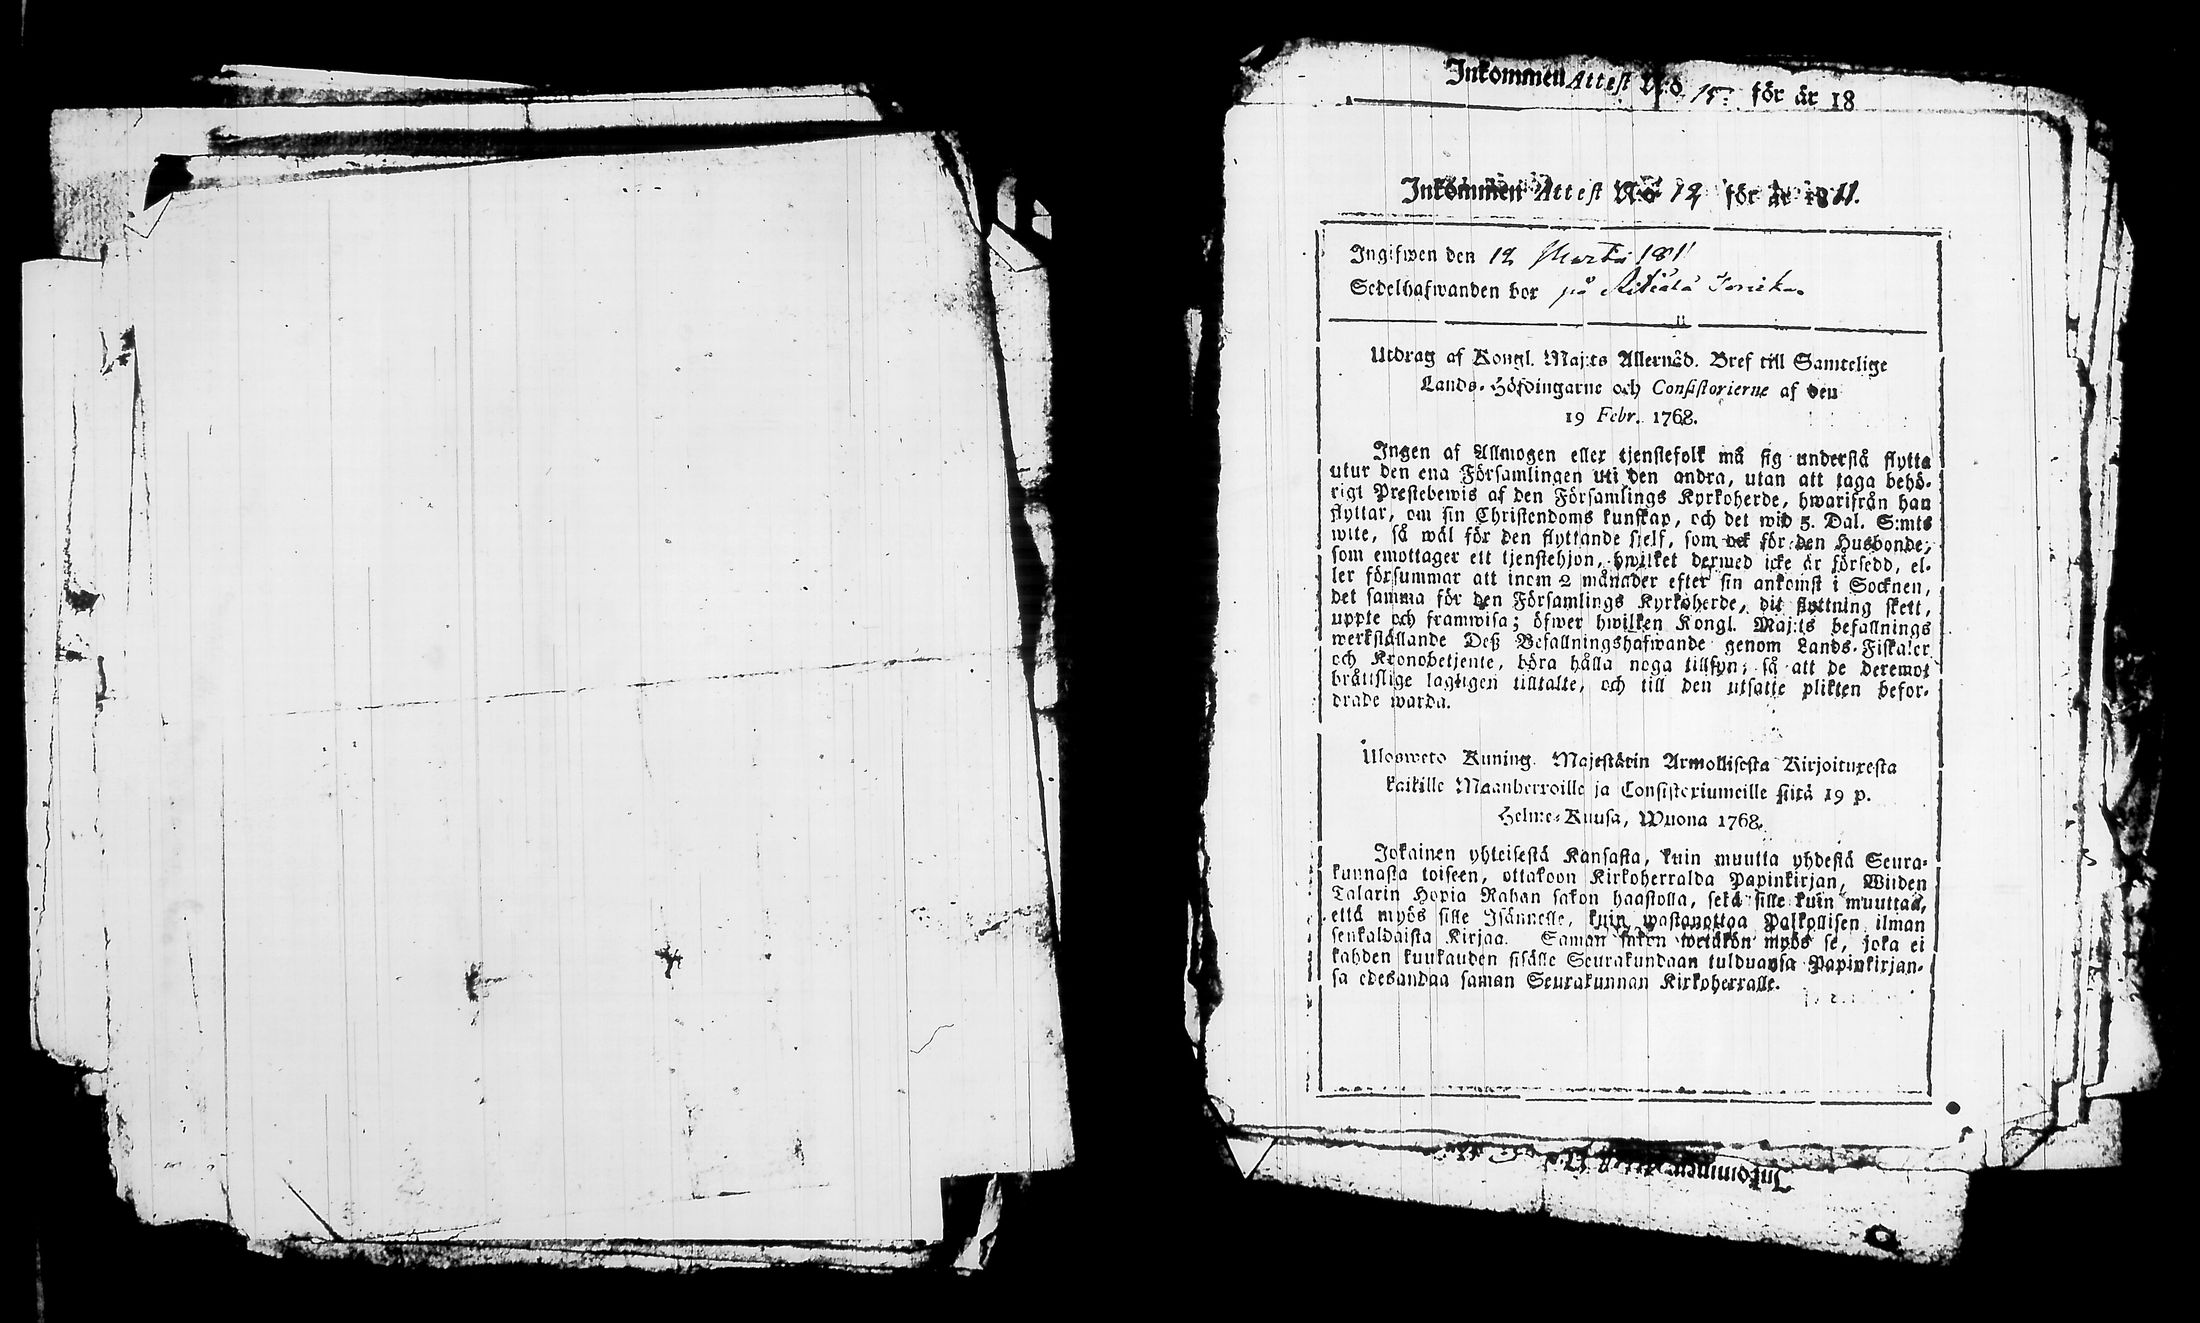 Inkommen Attest N:o 15. för år 18
Inkommen Attest N:o 12 för år 1811.
Ingifwen den 12 Martii 1811
Sedelhafwanden bor på
Utdrag af Kongl. Maj:ts Allernåd. Bref till Samtelige
Lands-Höfdingarne och Consistorierne af den
19 Febr. 1768.
Ingen af Allmogen eller tjenstefolk må sig understå flytta
utur den ena Församlingen uti den andra, utan att taga behö-
rigt Prestebewis af den Församlings Kyrkoherde, hwarifrån han
flyttar, om sin Christendoms kunskap, och det wid 5. Dal. S:mts
wite, så wäl för den flyttande sjelf, som ock för den Husbonde,
som emottager ett tjenstehjon, hwilket dermed icke är försedd, el-
ler försummar att inom 2 månader efter sin ankomst i Socknen,
det samma för den Församlings Kyrkoherde, dit flyttning skett,
uppte och framwisa; öfwer hwilken Kongl. Maj:ts befallnings
werkställande Deß Befallningshafwande genom Lands-Fiskaler
och Kronobetjente, böra hålla noga tillsyn, så att de deremot
bråttslige lagligen tilltalte, och till den utsatte plikten befor-
drade warda.
Ulosweto Kuning. Majestätin Armollisesta Kirjoituxesta
kaikille Maanherroille ja Consistoriumeille siitä 19 p.
Helme-Kuusa, Wuona 1768.
Jokainen yhteisestä Kansasta, kuin muutta yhdestä Seura-
kunnasta toiseen, ottakoon Kirkoherralda Papinkirjan, Wiiden
Talarin Hopia Rahan sakon haastolla, sekä sille kuin muuttaa,
että myös sille Isännelle, kuin wastanottaa Palkollisen ilman
senkaldaista Kirjaa. Saman sakon wetäkön myös se, joka ei
kahden kuukauden sisälle Seurakundaan tulduansa Papinkirjan-
sa edesandaa saman Seurakunnan Kirkoherralle.
Inkommen